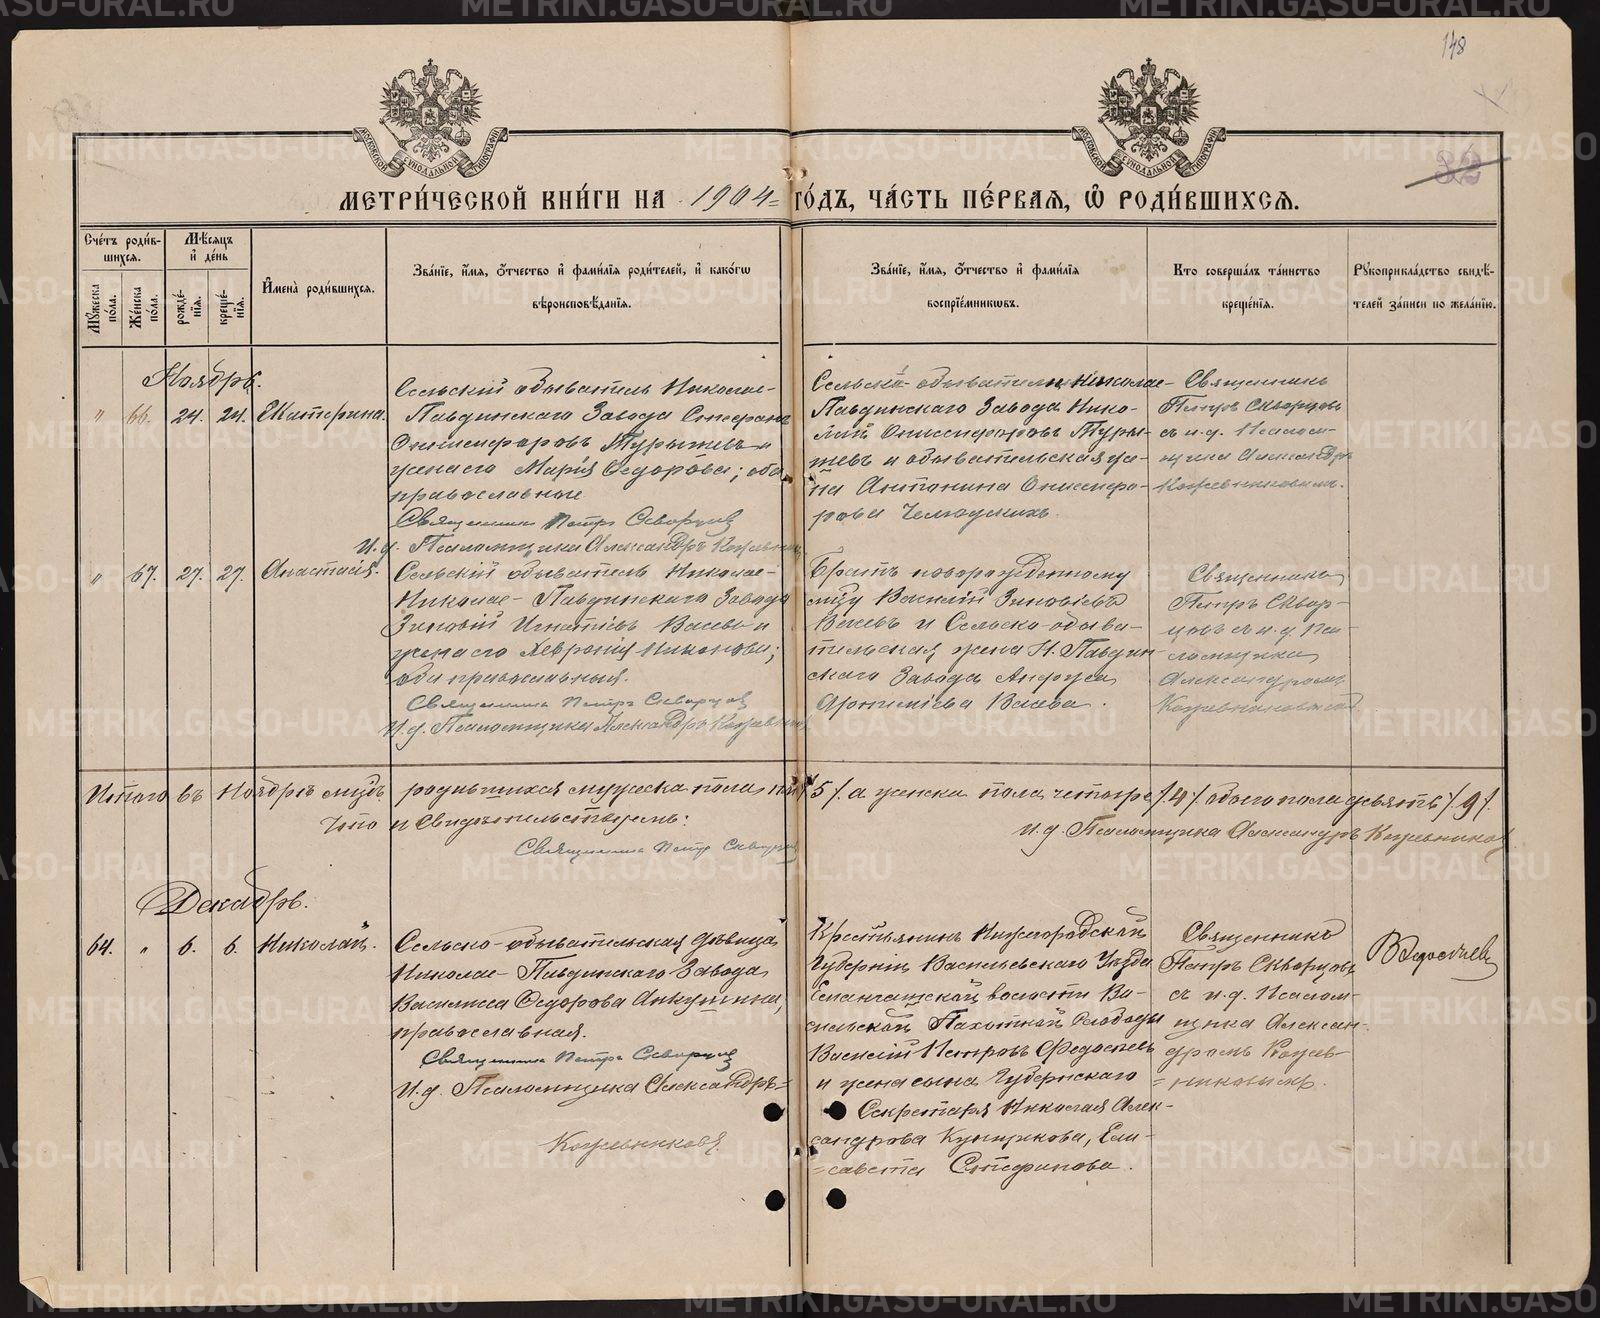 148
32
МЕТРИ́ЧЕСКОЙ КНИ́ГИ НА 1904 ГО́ДЪ, ЧА́СТЬ ПЕ́РВАЯ, Ѽ РОДИ́ВШИХСЯ.
Сче́тъ роди́вшихся.
Мꙋ́жеска по́ла.
Же́нска по́ла.
Мѣ́сяцъ и҆ де́нь
рожде́нїя.
креще́нїя.
И҆мена̀ роди́вшихся.
Зва́нїе, и҆́мя, ѻ҆́тчество и҆ фами́лїя роди́телей, и҆ како́гѡ
вѣроисповѣ́данїя.
Зва́нїе, и҆́мя, ѻ҆́тчество и҆ фами́лїя
воспрїе́мникѡвъ.
Кто̀ соверша́лъ та́инство
креще́нїя.
Рꙋкоприкла́дство свидѣ́-
телей за́писи по жела́нїю.
Ноябрь.
" 66. 24. 24. Екатерина.
Сельскій обыватель Николае-
Павдинскаго Завода Стефанъ
Онисифоровъ Турышевъ и
жена его Марія Ѳедорова; оба
православные
Священникъ Петръ Скворцов
И. д. Псаломщика Александръ Кожевников
Сельско-обыватель Николае-
Павдинскаго Завода Нико-
лай Онисифоровъ Туры-
шевъ и обывательская же-
на Антонина Онисифо-
рова
Священникъ
Петръ Скворцовъ
съ и. д. Псалом-
щика Александръ
Кожевниковымъ.
" 67. 27. 27. Анастасія.
Сельскій обыватель Николае-
Николае-Павдинскаго Завода
Зиновій Игнатіевъ Васевъ и
жена его Хевронія Никонова;
оба православныя.
Священникъ Петръ Скворцов
И. д. Псаломщика Александръ Кожевников
Братъ новорожденному
Василій Зиновіевъ
Васевъ и Сельско-обыва-
тельская жена Н. Павдин-
скаго Завода
Артеміева Васева.
Священникъ
Петръ Сквор-
цовъ съ и. д. Пса-
ломщика
Александромъ
Кожевниковымъ.
Итого въ Ноябрѣ мцѣ родившихся мужеска пола пять /5/. а женска пола четыре /4/. обоего пола девять /9/.
Что и свидѣтельствуемъ:
Священникъ Петръ Скворцов
и. д. Псаломщика Александръ Кожевников
Декабрь.
64. " 6. 6. Николай.
Сельско-обывательская дѣвица
Николае-Павдинскаго Завода
Василиса Ѳедорова
православная.
Священникъ Петръ Скворцов
И. д. Псаломщика Александръ
Кожевниковъ.
Крестьянинъ Нижегородской
Губерніи Васильевскаго Уѣзда
волости Ва-
сильской Пахотной Слободы
Василій Петровъ Федосѣевъ
и жена сына Губернскаго
Секретаря Николая Алек-
сандрова Ели-
савета Стефанова.
Священникъ
Петръ Скворцовъ
съ и. д. Псалом-
щика Алексан-
дромъ Кожев-
никовымъ.
В Федосѣев